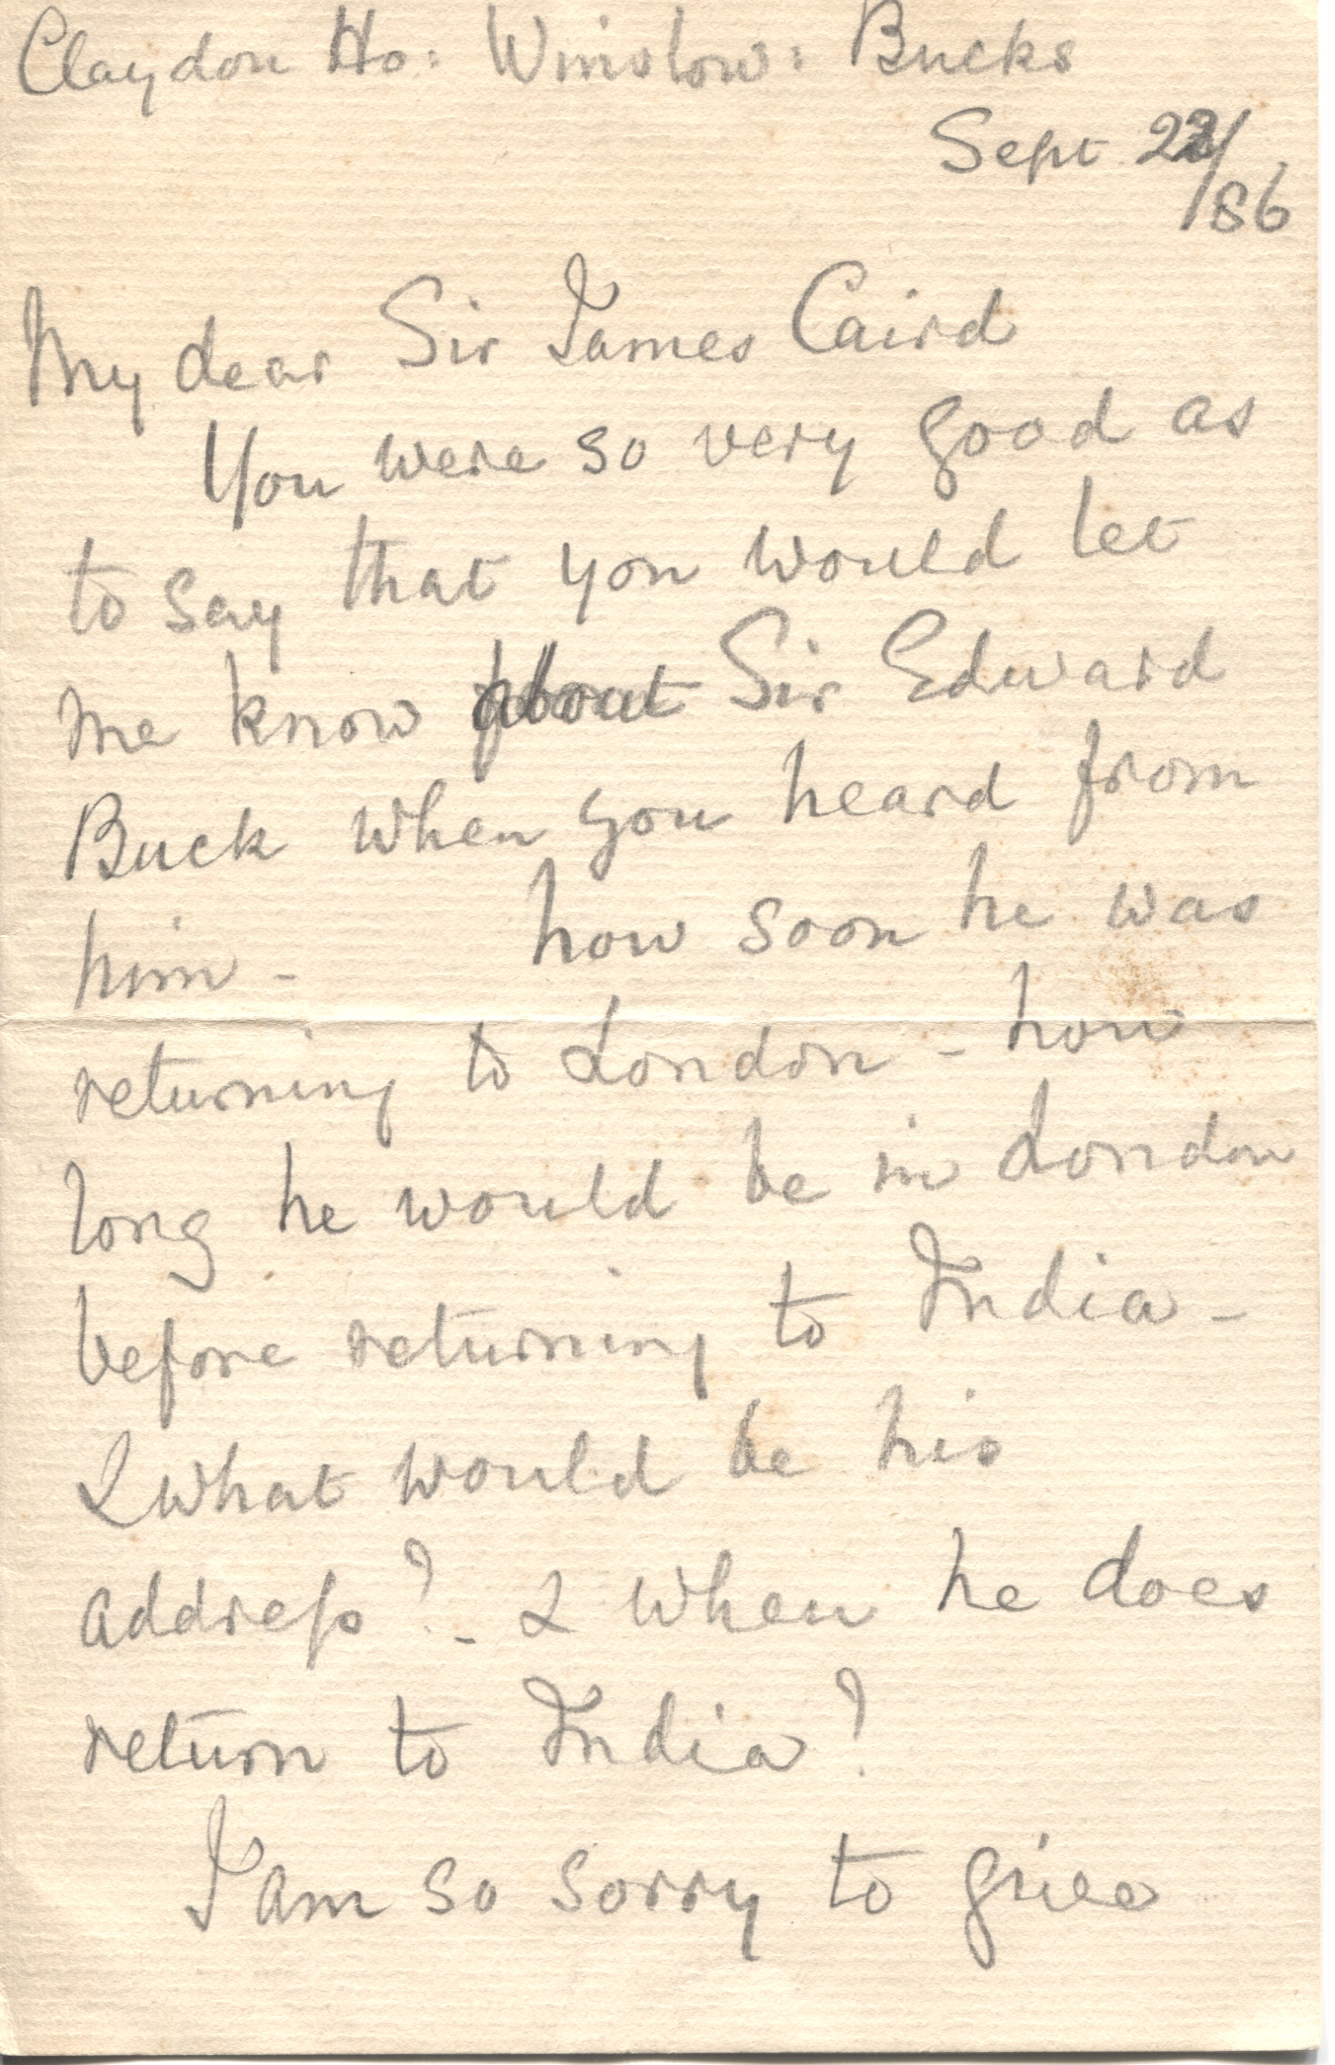 Claydon Ho: Winslow: Bucks
Sept 22/86
My dear Sir James Caird
You were so very good as
to say that you would let
me know about Sir Edward
Buck when you heard from
him - how soon he was
returning to London - how
long he would be in London
before returning to India -
& what would be his
address? - & when he does
return to India?
I am so sorry to give